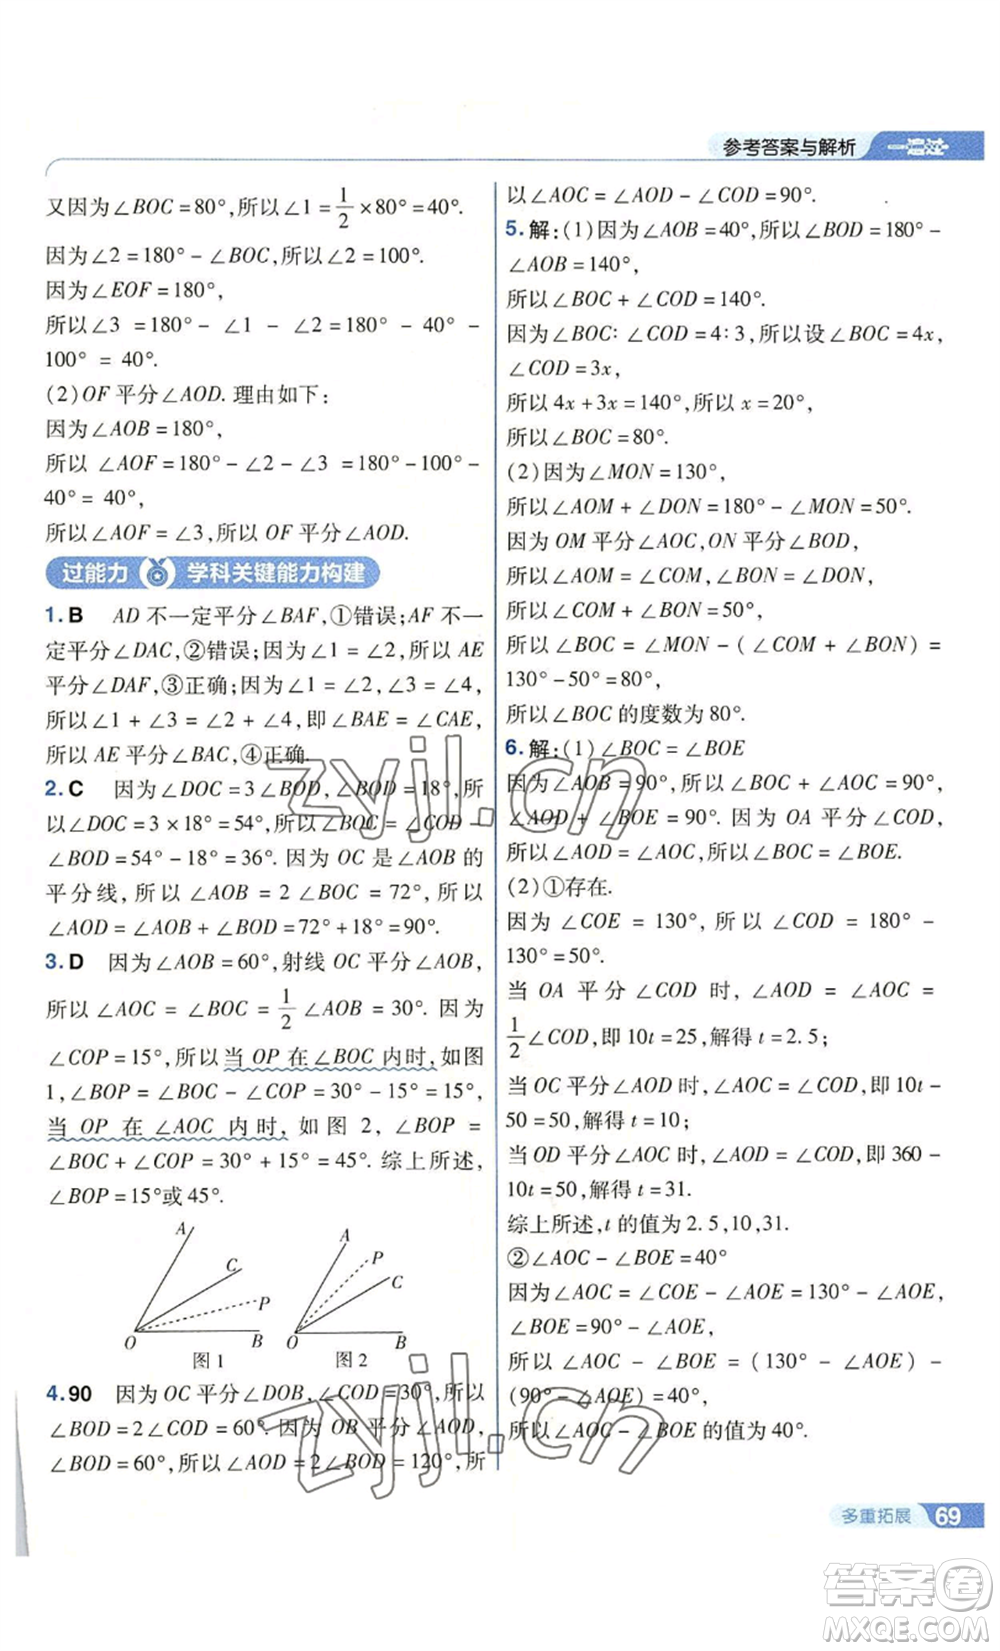 参考答案与解析 一遍过
又因为∠BOC=80°,所以∠1=1/2×80°=40°.
因为∠2=180°-∠BOC,所以∠2=100°.
因为∠EOF=180°,
所以∠3 =180°- ∠1 - ∠2 =180° - 40° -
100° = 40°.
(2)OF 平分∠AOD. 理由如下:
因为∠AOB=180°,
所以 ∠AOF=180°-∠2-∠3 =180°-100°-
40° = 40°,
所以∠AOF=∠3,所以 OF 平分∠AOD.
过能力 学科关键能力构建
1. B AD 不一定平分∠BAF,①错误;AF 不一
定平分∠DAC,②错误;因为∠1=∠2,所以 AE
平分∠DAF,③正确;因为∠1=∠2,∠3=∠4,
所以∠1+∠3=∠2+∠4,即∠BAE=∠CAE,
所以 AE 平分∠BAC,④正确.
2. C 因为∠DOC=3∠BOD,∠BOD=18°,所
以∠DOC=3×18°=54°,所以∠BOC=∠COD-
∠BOD=54°-18°=36°. 因为 OC 是∠AOB 的
平分线,所以∠AOB=2∠BOC=72°,所以
∠AOD=∠AOB+∠BOD=72°+18°=90°.
3. D 因为∠AOB=60°,射线 OC 平分∠AOB,
所以∠AOC=∠BOC=1/2∠AOB=30°. 因为
∠COP=15°,所以当 OP 在∠BOC 内时,如图
1,∠BOP=∠BOC-∠COP=30°-15°=15°,
当 OP 在∠AOC 内时,如图 2,∠BOP=
∠BOC+∠COP=30°+15°=45°. 综上所述,
∠BOP=15°或 45°.
A
C
P
O
B
图 1
A
P
C
O
B
图 2
4. 90 因为 OC 平分∠DOB,∠COD=30°,所以
∠BOD=2∠COD=60°. 因为 OB 平分∠AOD,
∠BOD=60°,所以∠AOD=2∠BOD=120°,所
以∠AOC=∠AOD-∠COD=90°.
5. 解:(1)因为∠AOB=40°,所以∠BOD=180°-
∠AOB=140°,
所以∠BOC+∠COD=140°.
因为∠BOC∶∠COD=4∶3,所以设∠BOC=4x,
∠COD=3x,
所以 4x+3x=140°,所以 x=20°,
所以∠BOC=80°.
(2)因为∠MON=130°,
所以∠AOM+∠DON=180°-∠MON=50°.
因为 OM 平分∠AOC,ON 平分∠BOD,
所以∠AOM=∠COM,∠BON=∠DON,
所以∠COM+∠BON=50°,
所以∠BOC=∠MON-(∠COM+∠BON)=
130°-50°=80°,
所以∠BOC 的度数为 80°.
6. 解:(1)∠BOC=∠BOE
因为∠AOB=90°,所以∠BOC+∠AOC=90°,
∠AOD+∠BOE=90°. 因为 OA 平分∠COD,
所以∠AOD=∠AOC,所以∠BOC=∠BOE.
(2)①存在.
因为∠COE=130°,所以∠COD=180°-
130°=50°.
当 OA 平分∠COD 时,∠AOD=∠AOC=
1/2∠COD,即 10t=25,解得 t=2.5;
当 OC 平分∠AOD 时,∠AOC=∠COD,即 10t-
50=50,解得 t=10;
当 OD 平分∠AOC 时,∠AOD=∠COD,即 360-
10t=50,解得 t=31.
综上所述,t 的值为 2.5,10,31.
②∠AOC-∠BOE=40°
因为∠AOC=∠COE-∠AOE=130°-∠AOE,
∠BOE=90°-∠AOE,
所以∠AOC-∠BOE=(130°-∠AOE)-
(90°-∠AOE)=40°,
所以∠AOC-∠BOE 的值为 40°.
zyjl.cn
zyjl.cn
多重拓展 69
答案圈
MXQE.COM